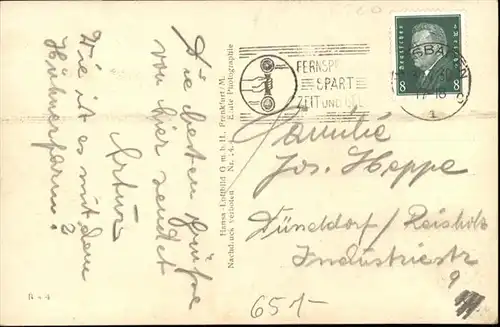 Die besten Grüße
von hier sendet
Artur
Wie ist es mit dem
Hühnerfarm?
Hansa-Luftbild G. m. b. H., Frankfurt/M.
Nachdruck verboten Nr.
Echte Photographie
FERNSP
SPART
ZEIT UND GEL
SBADEN
17-18
1
Deutsches Reich
8 8
Familie
Jos. Heppe
Düsseldorf / Reisholz
Industriestr
9
651-
R - 4